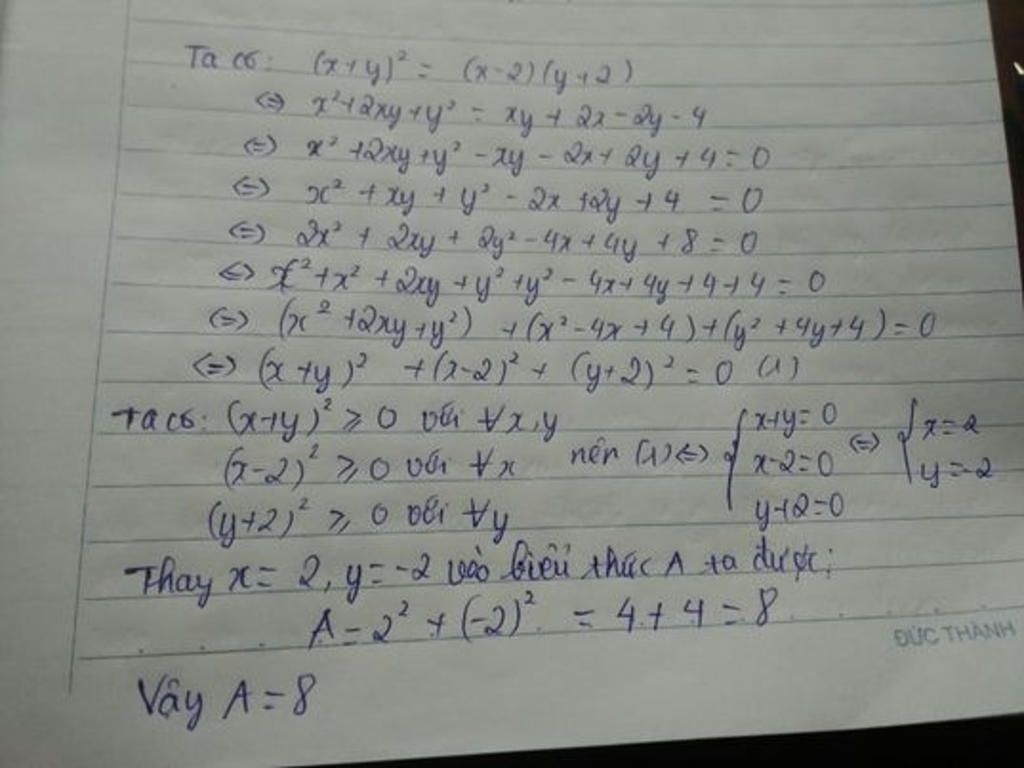 Ta có: (x+y)² = (x-2)(y+2)
⇔ x²+2xy+y² = xy+2x-2y-4
⇔ x²+2xy+y²-xy-2x+2y+4=0
⇔ x²+xy+y²-2x+2y+4=0
⇔ 2x²+2xy+2y²-4x+4y+8=0
⇔ x²+x²+2xy+y²+y²-4x+4y+4+4=0
⇔ (x²+2xy+y²)+(x²-4x+4)+(y²+4y+4)=0
⇔ (x+y)²+(x-2)²+(y+2)²=0 (1)
Ta có: (x+y)² ⩾ 0 với ∀x,y
(x-2)² ⩾ 0 với ∀x
(y+2)² ⩾ 0 với ∀y
nên (1) ⇔ { x+y=0
x-2=0
y+2=0
⇔ { x=2
y=-2
Thay x=2, y=-2 vào biểu thức A ta được:
A=2²+(-2)²=4+4=8
ĐỨC THÀNH
Vậy A=8